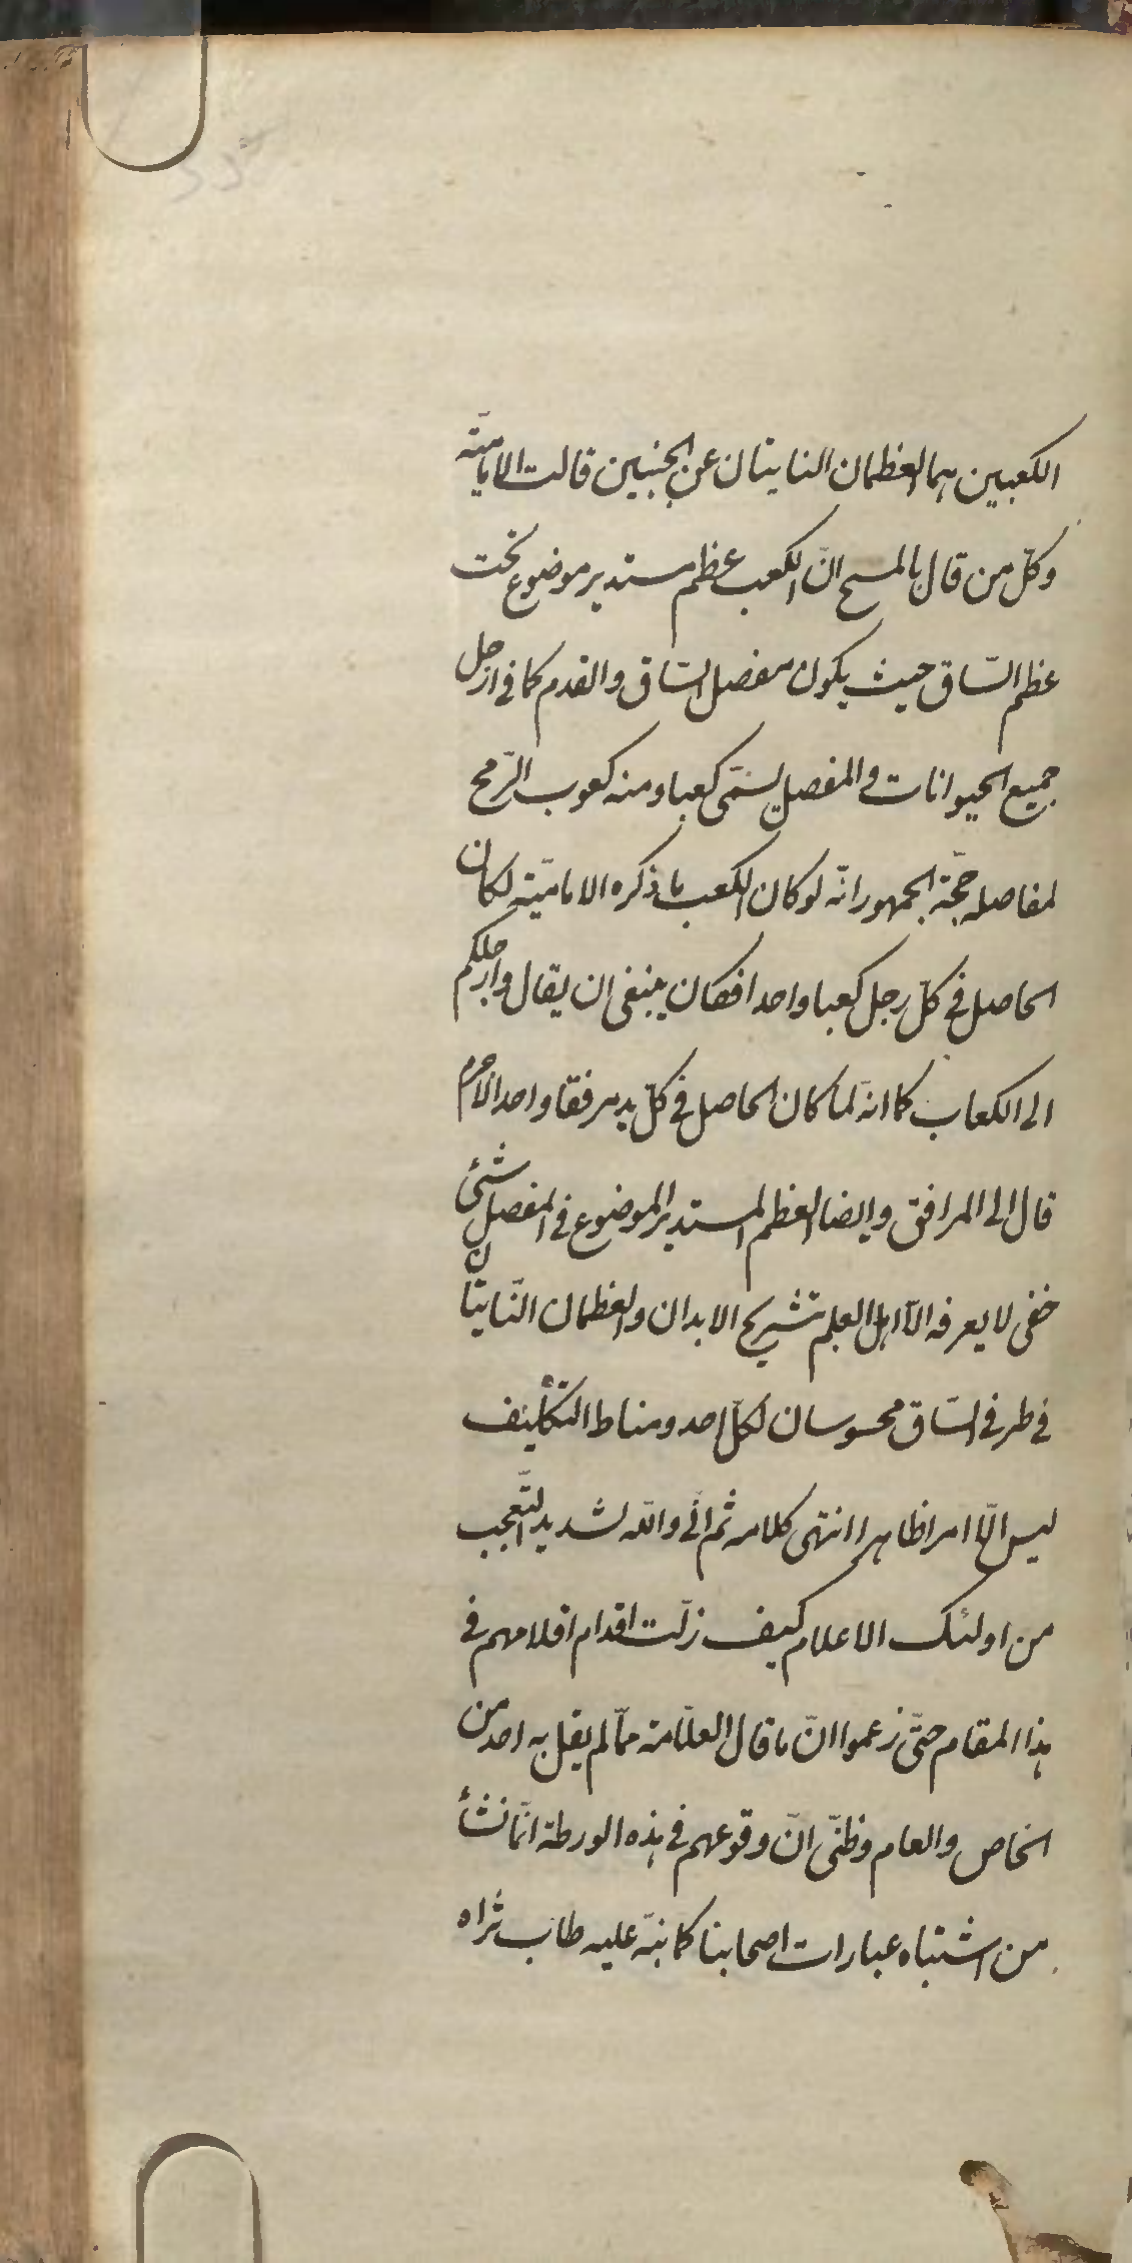 الكعبين هما العظمان الناتيان عن الجنبين قالت الامامیّة
وكلّ من قال بالمسح انّ الكعب عظم مستدير موضوع تحت
عظم السّاق حيث يكون مفصل السّاق والقدم كما في ارجل
جميع الحيوانات والمفصل يسمّى كعبا ومنه كعوب الرّمح
لمفاصله حجّة الجمهور انّه لو كان الكعب ما ذكره الاماميّة لكان
الحاصل في كلّ رجل كعبا واحدا فكان ينبغى ان يقال وارجلكم
الى الكعاب كما انّه لما كان الحاصل في كلّ يد مرفقا واحدا لاجرم
قال الى المرافق وايضا العظم المستدير الموضوع في المفصل شئ
خفى لا يعرفه الّا اهل العلم بتشريح الابدان والعظمان النّاتيان
في طرفى السّاق محسوسان لكلّ احد ومناط التكليف
ليس الّا امرا ظاهرا انتهى كلامه ثم انّى والله لشديد التّعجب
من اولئك الاعلام كيف زلّت اقدام اقلامهم في
هذا المقام حتّى زعموا انّ ما قال العلّامة ممّا لم يقل به احد من
الخاص والعام وظنّى انّ وقوعهم في هذه الورطة انّما نشأ
من اشتباه عبارات اصحابنا كما نبّه عليه طاب ثراه